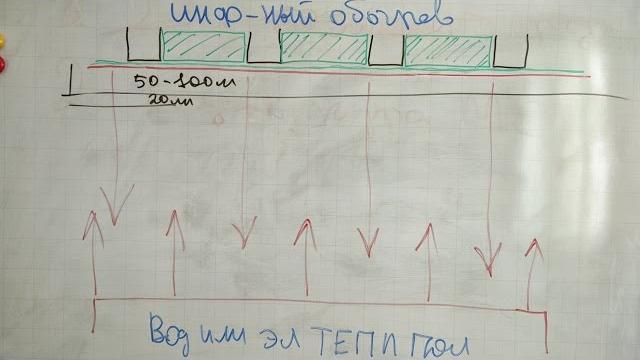 инфр-ный обогрев
50-100м
20мм
Вод или эл ТЕПЛ ПОЛ